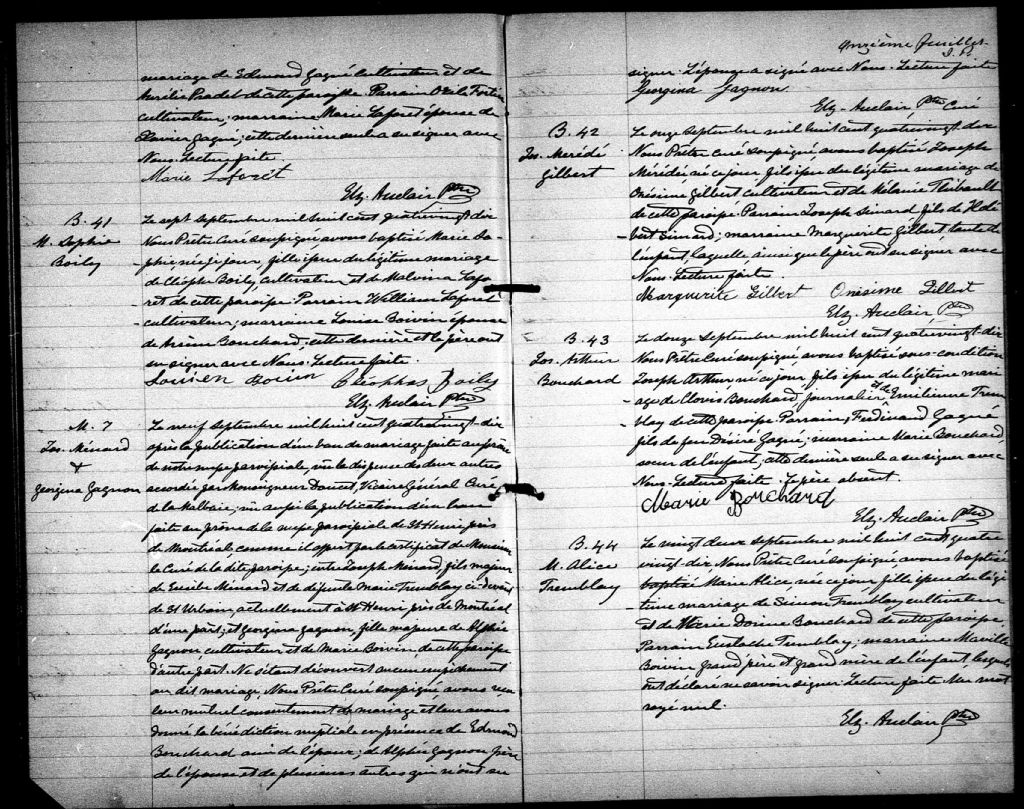 mariage de Edmond Gagné cultivateur et de
Aurélie Pradet de cette paroisse Parrain Ozila Fortin
cultivateur, marraine Marie Laforet épouse de
Clavier Gagné, cette dernière seule a su signer avec
Nous. Lecture faite
Marie Laforêt
Elz. Auclair Ptre
B. 41
M. Sophie
Boily
Le sept septembre mil huit cent quatrevingt dix
Nous Prêtre Curé soussigné, avons baptisé Marie So-
-phie, née ce jour, fille issue du légitime mariage
de Cléophe Boily, cultivateur, et de Malvina Lafo-
ret de cette paroisse. Parrain William Laforet
-cultivateur; marraine Louise Boivin épouse
de Bouchard; cette dernière et le père ont
su signer avec Nous. Lecture faite.
Boivin Cléophas Boily
Elz. Auclair Ptre
M. 7
Jos. Ménard
+
Georgina Gagnon
Le neuf septembre mil huit cent quatrevingt dix
après la publication d'un ban de mariage faite au prône
de notre messe paroissiale, vu la dispense des deux autres
accordée par Monseigneur Doucet, Vicaire Général Curé
de la Malbaie; vu aussi la publication d'un ban
faite au prône de la messe paroissiale de St Henri, près
de Montréal, comme il appert par le certificat de Monsieur
le Curé de la dite paroisse; entre Joseph Ménard, fils majeur
de Eusèbe Ménard et de défunte Marie Tremblay ci-devant
de St Urbain, actuellement à St Henri, près de Montréal
d'une part; et Georgina Gagnon, fille mineure de Alphée
Gagnon cultivateur et de Marie Boivin, de cette paroisse
d'autre part. Ne s'étant découvert aucun empêchement
au dit mariage, Nous Prêtre Curé soussigné, avons reçu
leur mutuel consentement de mariage et leur avons
donné la bénédiction nuptiale en présence de Edmond
Bouchard ami de l'époux; de Alphée Gagnon père
de l'épouse et de plusieurs autres qui n'ont su
Onzième feuillet
signer. L'épouse a signé avec Nous. Lecture faite
Georgina Gagnon
Elz. Auclair, Ptre Curé
B. 42
Jos. Mérédé
Gilbert
Le onze septembre mil huit cent quatrevingt dix
Nous Prêtre Curé soussigné, avons baptisé Joseph
Mérédé né ce jour, fils issu du légitime mariage de
Onésime Gilbert cultivateur et de Mélanie Thibault
de cette paroisse. Parrain Joseph Simard, fils de Hildé
-bert Simard; marraine Marguerite Gilbert tante de
l'enfant, laquelle, ainsi que le père ont su signer avec
Nous. Lecture faite.
Marguerite Gilbert Onésime Gilbert
Elz. Auclair, Ptre
B. 43
Jos. Arthur
Bouchard
Le douze septembre mil huit cent quatrevingt dix
Nous Prêtre Curé soussigné, avons baptisé sous-condition
Joseph Arthur, né ce jour, fils issu du légitime mari-
age de Clovis Bouchard journalier et de Emilienne Trem-
blay de cette paroisse. Parrain, Ferdinand Gagné
fils de feu Désiré Gagné; marraine Marie Bouchard,
soeur de l'enfant, cette dernière seule a su signer avec
Nous. Lecture faite. Le père absent.
Marie Bouchard
Elz. Auclair Ptre
B. 44
M. Alice
Tremblay
Le vingt deux septembre mil huit cent quatre
vingt dix Nous Prêtre Curé soussigné, avons baptisé
baptisé Marie Alice, née ce jour, fille issue du légi
-time mariage de Simon Tremblay cultivateur
et de Marie Bouchard de cette paroisse.
Parrain Eustache Tremblay; marraine
Boivin grand père et grand mère de l'enfant, lesquels
ont déclaré ne savoir signer. Lecture faite. Un mot
rayé nul.
Elz. Auclair Ptre